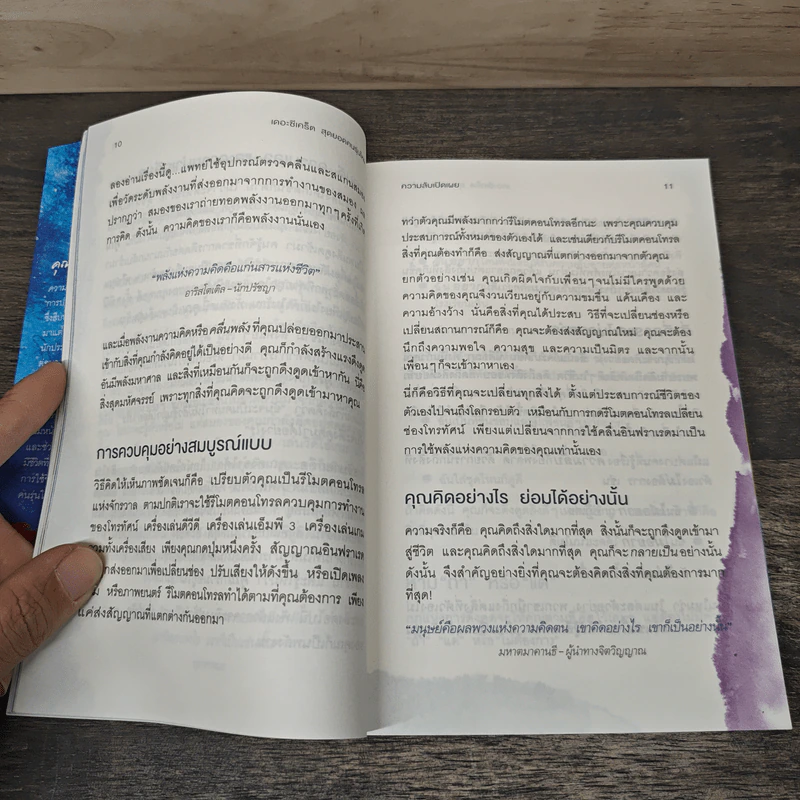 10
เดอะซีเคร็ต สุดยอดคนรุ่นใหม่
ลองอ่านเรื่องนี้ดู...แพทย์ใช้อุปกรณ์ตรวจคลื่นและสแกนสมอง
เพื่อวัดระดับพลังงานที่ส่งออกมาจากการทำงานของสมอง
ปรากฏว่า สมองของเราถ่ายทอดพลังงานออกมาทุกๆ ครั้งที่
การคิด ดังนั้น ความคิดของเราก็คือพลังงานนั่นเอง
"พลังแห่งความคิดคือแก่นสารแห่งชีวิต"
อาริสโตเติล – นักปรัชญา
และเมื่อพลังงานความคิดหรือคลื่นพลังที่คุณปล่อยออกมาประสาน
เข้ากับสิ่งที่คุณกำลังคิดอยู่ได้เป็นอย่างดี คุณก็กำลังสร้างแรงดึงดูด
อันมีพลังมหาศาล และสิ่งที่เหมือนกันก็จะถูกดึงดูดเข้าหากัน นี่คือ
สิ่งสุดมหัศจรรย์ เพราะทุกสิ่งที่คุณคิดจะถูกดึงดูดเข้ามาหาคุณ
การควบคุมอย่างสมบูรณ์แบบ
วิธีคิดให้เห็นภาพชัดเจนก็คือ เปรียบตัวคุณเป็นรีโมตคอนโทรล
แห่งจักรวาล ตามปกติเราจะใช้รีโมตคอนโทรลควบคุมการทำงาน
ของโทรทัศน์ เครื่องเล่นดีวีดี เครื่องเล่นเอ็มพี 3 เครื่องเล่นเกม
รวมทั้งเครื่องเสียง เพียงคุณกดปุ่มหนึ่งครั้ง สัญญาณอินฟราเรด
ส่งออกมาเพื่อเปลี่ยนช่อง ปรับเสียงให้ดังขึ้น หรือเปิดเพลง
หรือภาพยนตร์ รีโมตคอนโทรลทำได้ตามที่คุณต้องการ เพียง
แค่ส่งสัญญาณที่แตกต่างกันออกมา
ความลับเปิดเผย
11
ทว่าตัวคุณมีพลังมากกว่ารีโมตคอนโทรลอีกนะ เพราะคุณควบคุม
ประสบการณ์ทั้งหมดของตัวเองได้ และเช่นเดียวกับรีโมตคอนโทรล
สิ่งที่คุณต้องทำก็คือ ส่งสัญญาณที่แตกต่างออกมาจากตัวคุณ
ยกตัวอย่างเช่น คุณเกิดผิดใจกับเพื่อนๆ จนไม่มีใครพูดด้วย
ความคิดของคุณจึงวนเวียนอยู่กับความขมขื่น แค้นเคือง และ
ความอ้างว้าง นั่นคือสิ่งที่คุณได้ประสบ วิธีที่จะเปลี่ยนช่องหรือ
เปลี่ยนสถานการณ์ก็คือ คุณจะต้องส่งสัญญาณใหม่ คุณจะต้อง
นึกถึงความพอใจ ความสุข และความเป็นมิตร และจากนั้น
เพื่อนๆ ก็จะเข้ามาหาเอง
นี่ก็คือวิธีที่คุณจะเปลี่ยนทุกสิ่งได้ ตั้งแต่ประสบการณ์ชีวิตของ
ตัวเองไปจนถึงโลกรอบตัว เหมือนกับการกดรีโมตคอนโทรลเปลี่ยน
ช่องโทรทัศน์ เพียงแต่เปลี่ยนจากการใช้คลื่นอินฟราเรดมาเป็น
การใช้พลังแห่งความคิดของคุณเท่านั้นเอง
คุณคิดอย่างไร ย่อมได้อย่างนั้น
ความจริงก็คือ คุณคิดถึงสิ่งใดมากที่สุด สิ่งนั้นก็จะถูกดึงดูดเข้ามา
สู่ชีวิต และคุณคิดถึงสิ่งใดมากที่สุด คุณก็จะกลายเป็นอย่างนั้น
ดังนั้น จึงสำคัญอย่างยิ่งที่คุณจะต้องคิดถึงสิ่งที่คุณต้องการมาก
ที่สุด!
"มนุษย์คือผลพวงแห่งความคิดตน เขาคิดอย่างไร เขาก็เป็นอย่างนั้น"
มหาตมาคานธี – ผู้นำทางจิตวิญญาณ